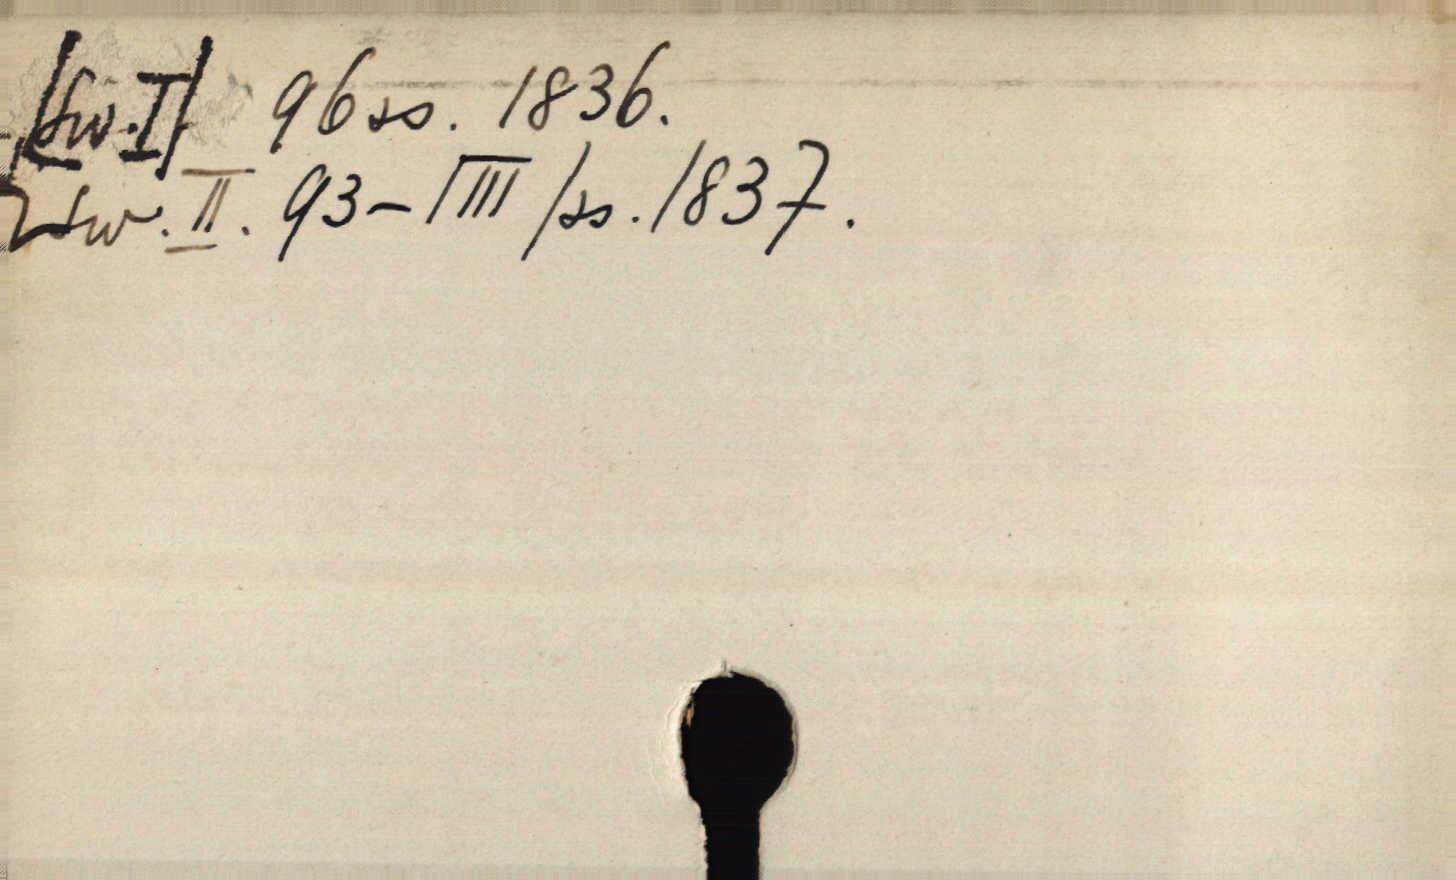 [Sw. I] 96 ss. 1836.
Sw. II. 93-|III| ss. 1837.